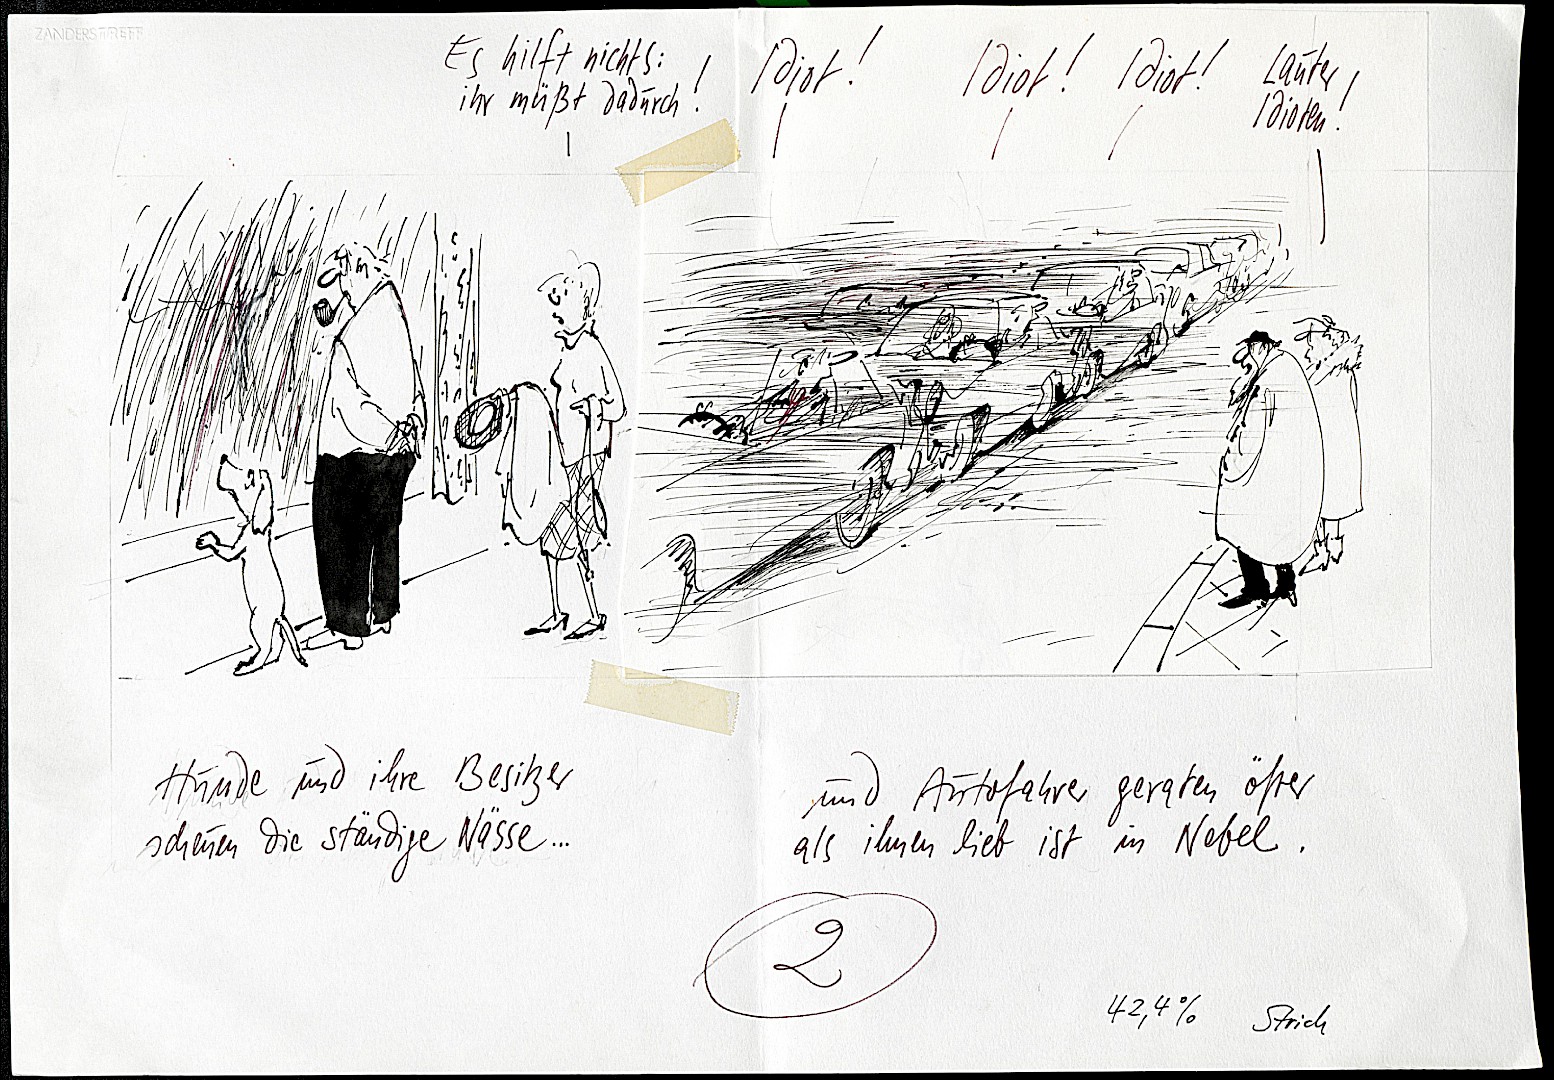 ZANDERS
Es hilft nichts:
ihr müßt dadurch!
Idiot!
Idiot!
Idiot!
Lauter
Idioten!
Hunde und ihre Besitzer
scheuen die ständige Nässe...
und Autofahrer geraten öfter
als ihnen lieb ist in Nebel.
2
42,4%
Strich